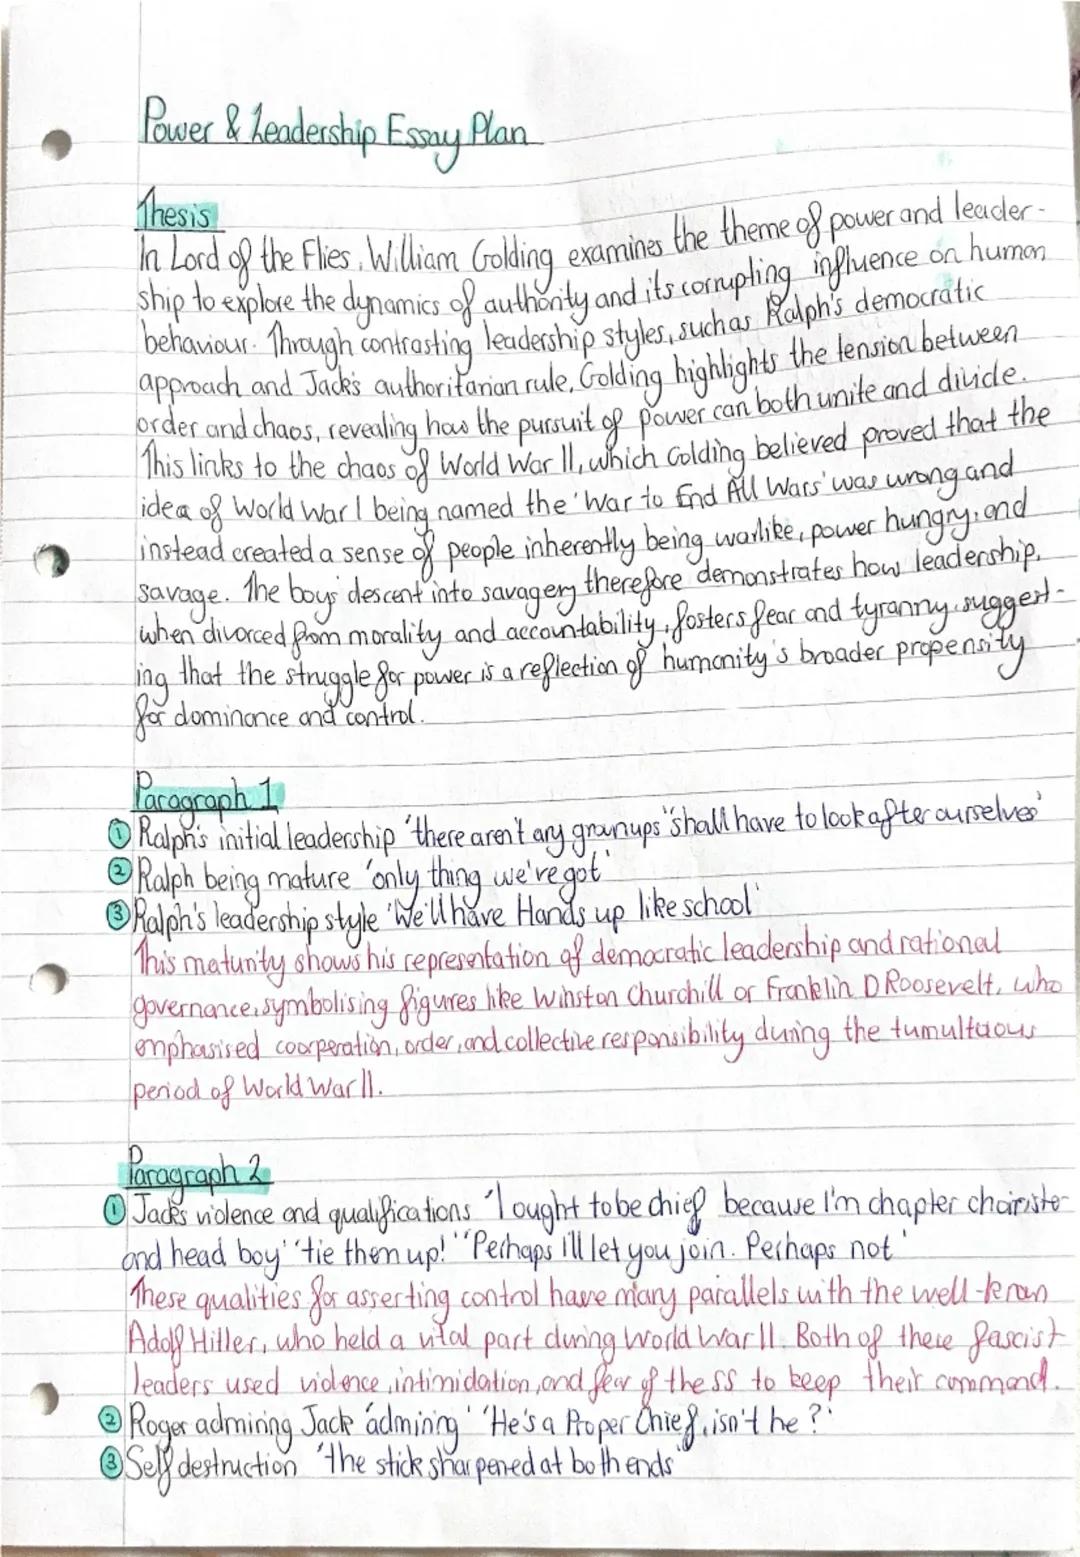 Power & Leadership Essay Plan
Thesis
In Lord of the Flies, William Golding examines the theme of power and leader-
ship to explore the dynamics of authority and its corrupting influence on human
behaviour. Through contrasting leadership styles, such as Ralph's democratic
approach and Jack's authoritarian rule, Golding highlights the tension between
order and chaos, revealing how the pursuit of power can both unite and divide.
This links to the chaos of World War II, which Golding believed proved that the
idea of World War I being named the 'War to End All Wars' was wrong and
instead created a sense of people inherently being warlike, power hungry, and
savage. The boys' descent into savagery therefore demonstrates how leadership,
when divorced from morality and accountability, fosters fear and tyranny, suggest-
ing that the struggle for power is a reflection of humanity's broader propensity
for dominance and control.
Paragraph 1
① Ralph's initial leadership 'there aren't any grownups' 'shall have to look after ourselves'
② Ralph being mature 'only thing we've got'
③ Ralph's leadership style 'We'll have Hands up like school'
This maturity shows his representation of democratic leadership and rational
governance, symbolising figures like Winston Churchill or Franklin D Roosevelt, who
emphasised coorperation, order, and collective responsibility during the tumultuous
period of World War II.
Paragraph 2
① Jack's violence and qualifications 'I ought to be chief because I'm chapter choirister
and head boy' 'tie them up!' 'Perhaps i'll let you join. Perhaps not'
These qualities for asserting control have many parallels with the well-known
Adolf Hitler, who held a vital part during World War II. Both of these fascist
leaders used violence, intimidation, and fear of the ss to keep their command.
② Roger admiring Jack 'admiring' 'He's a Proper Chief, isn't he?'
③ Self destruction 'the stick sharpened at both ends'